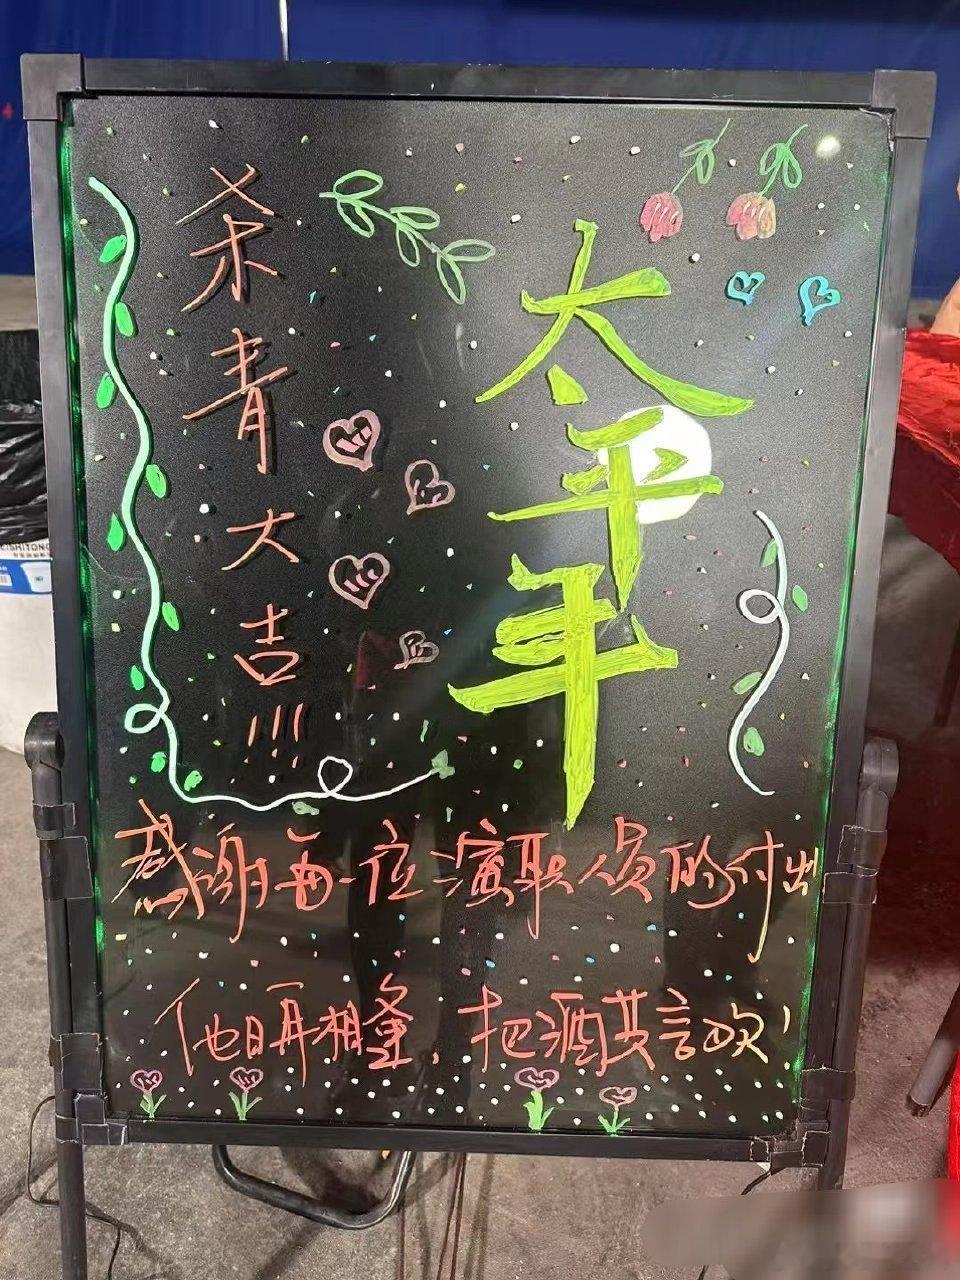 太平年
杀青大吉!!!
感谢每一位演职人员的付出
他日再相逢，把酒共言欢!